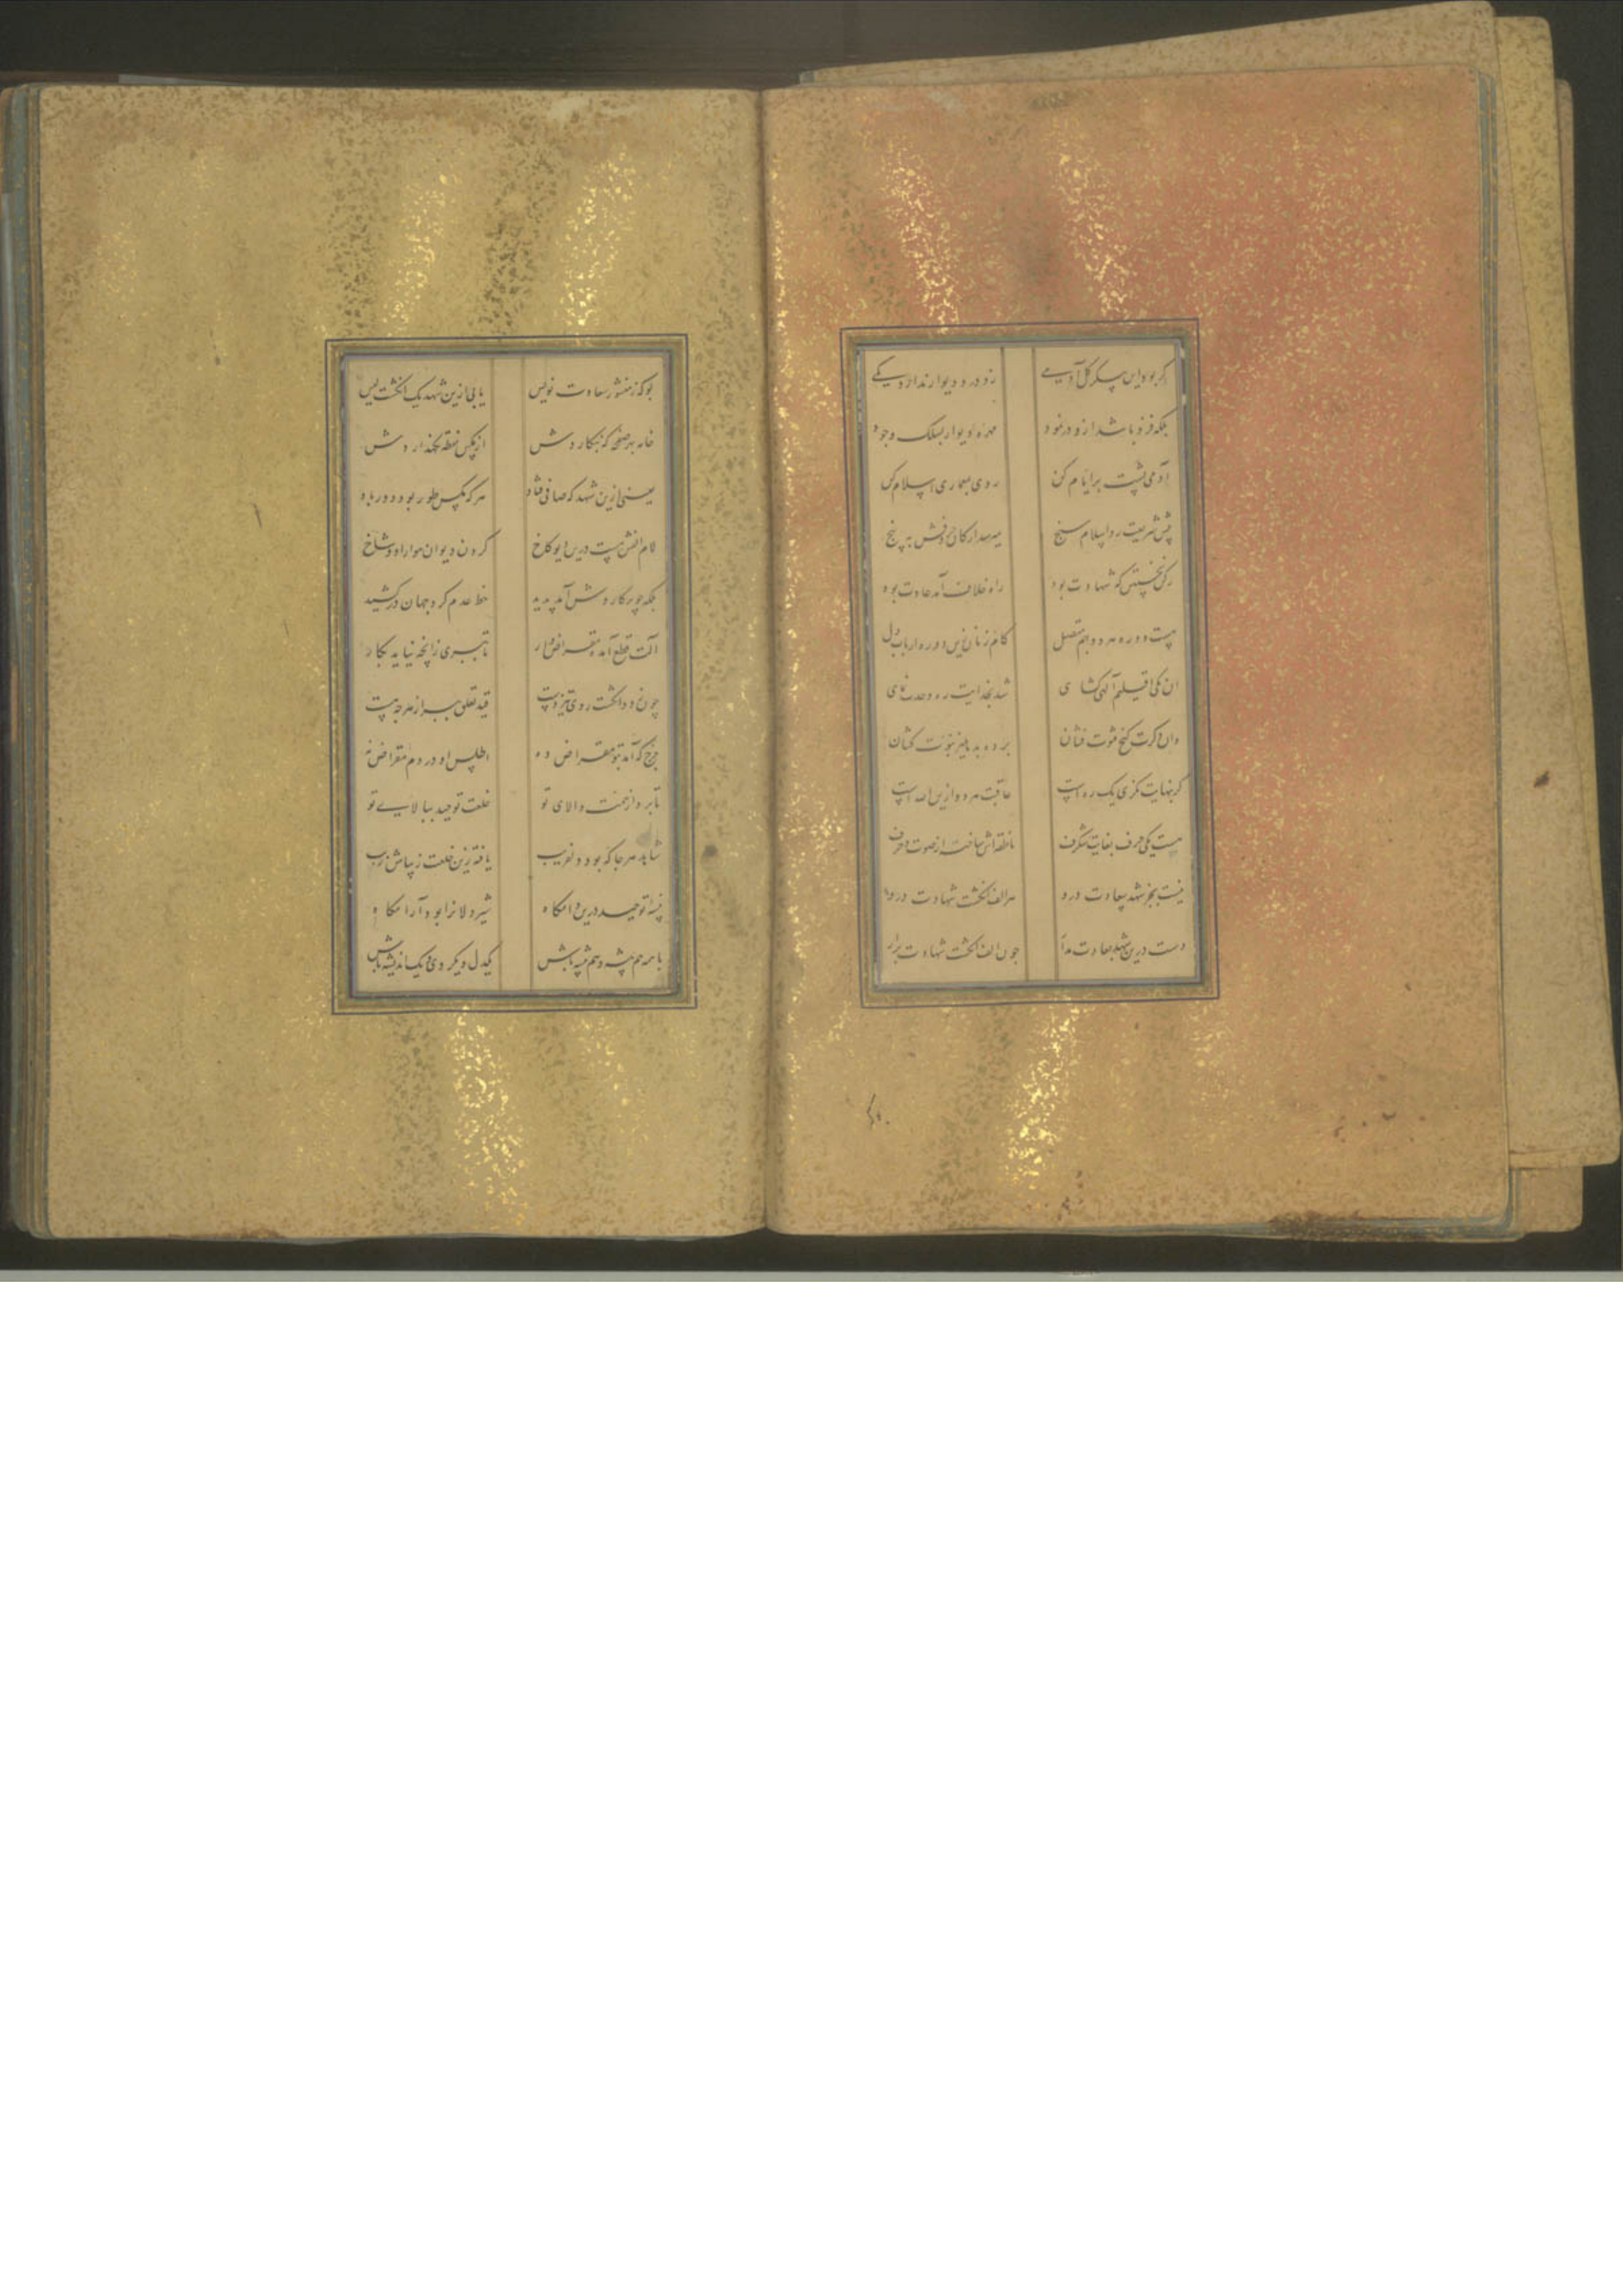 گر بود این پیکر گل آدمی زو در و دیوار ندارد کمی
بلکه فزون باشد ازو در نمود مهره دیوار بسلک وجود
آدمی پشت بر ایام کن روی بمعماری اسلام کن
پیش شریعت رو اسلام سنج به پنج
رکن نخستین که شهادت بود راه خلاف آمد عادت بود
هست دو ره هر دو بهم متصل گام زنان زین دو ره ارباب دل
آن یکی اقلیم آلهی گشای شد بخدایت ره وحدت نمای
وان دگرت گنج فتوت فشان برده بدهلیز نبوت کشان
گر بنهایت نگری یک ره است عاقبت هر دو ازین است
هست یکی حرف بغایت شگرف ناطقه اش ساخته از صوت و حرف
نیست بجز شهد سعادت درو هر الف انگشت شهادت درو
دست درین شهد سعادت مدار چون الف انگشت شهادت برار
بو که ز منشور سعادت نویس یابی ازین شهد یک انگشت لیس
خامه بهر صفحه که بنگاردش از مگس نقطه نگهداردش
یعنی ازین شهد که صافی فتاد هر که مگس طور بود دور باد
لام الفش هست درین دیو کاخ گردن دیوان هوا را دو شاخ
بلکه چو پرگار دو شش آمد پدید خط عدم گرد جهان درکشید
آلت قطع آمده مقراض وار تا ببری ز آنچه نیاید بکار
چون دو دو انگشت روی تیز دست قید تعلق ببر از هر چه هست
چرخ که آمد بتو مقراض ده اطلس او در دم مقراض نه
تا برد از همت والای تو خلعت توحید ببالای تو
شاهد هر جا که بود دلفریب یافته زین خلعت زیباش زیب
توحید درین دامگاه شیردلانرا بود آرامگاه
با همه هم پیشه و هم باش یکدل و یکروی و یک اندیشه باش